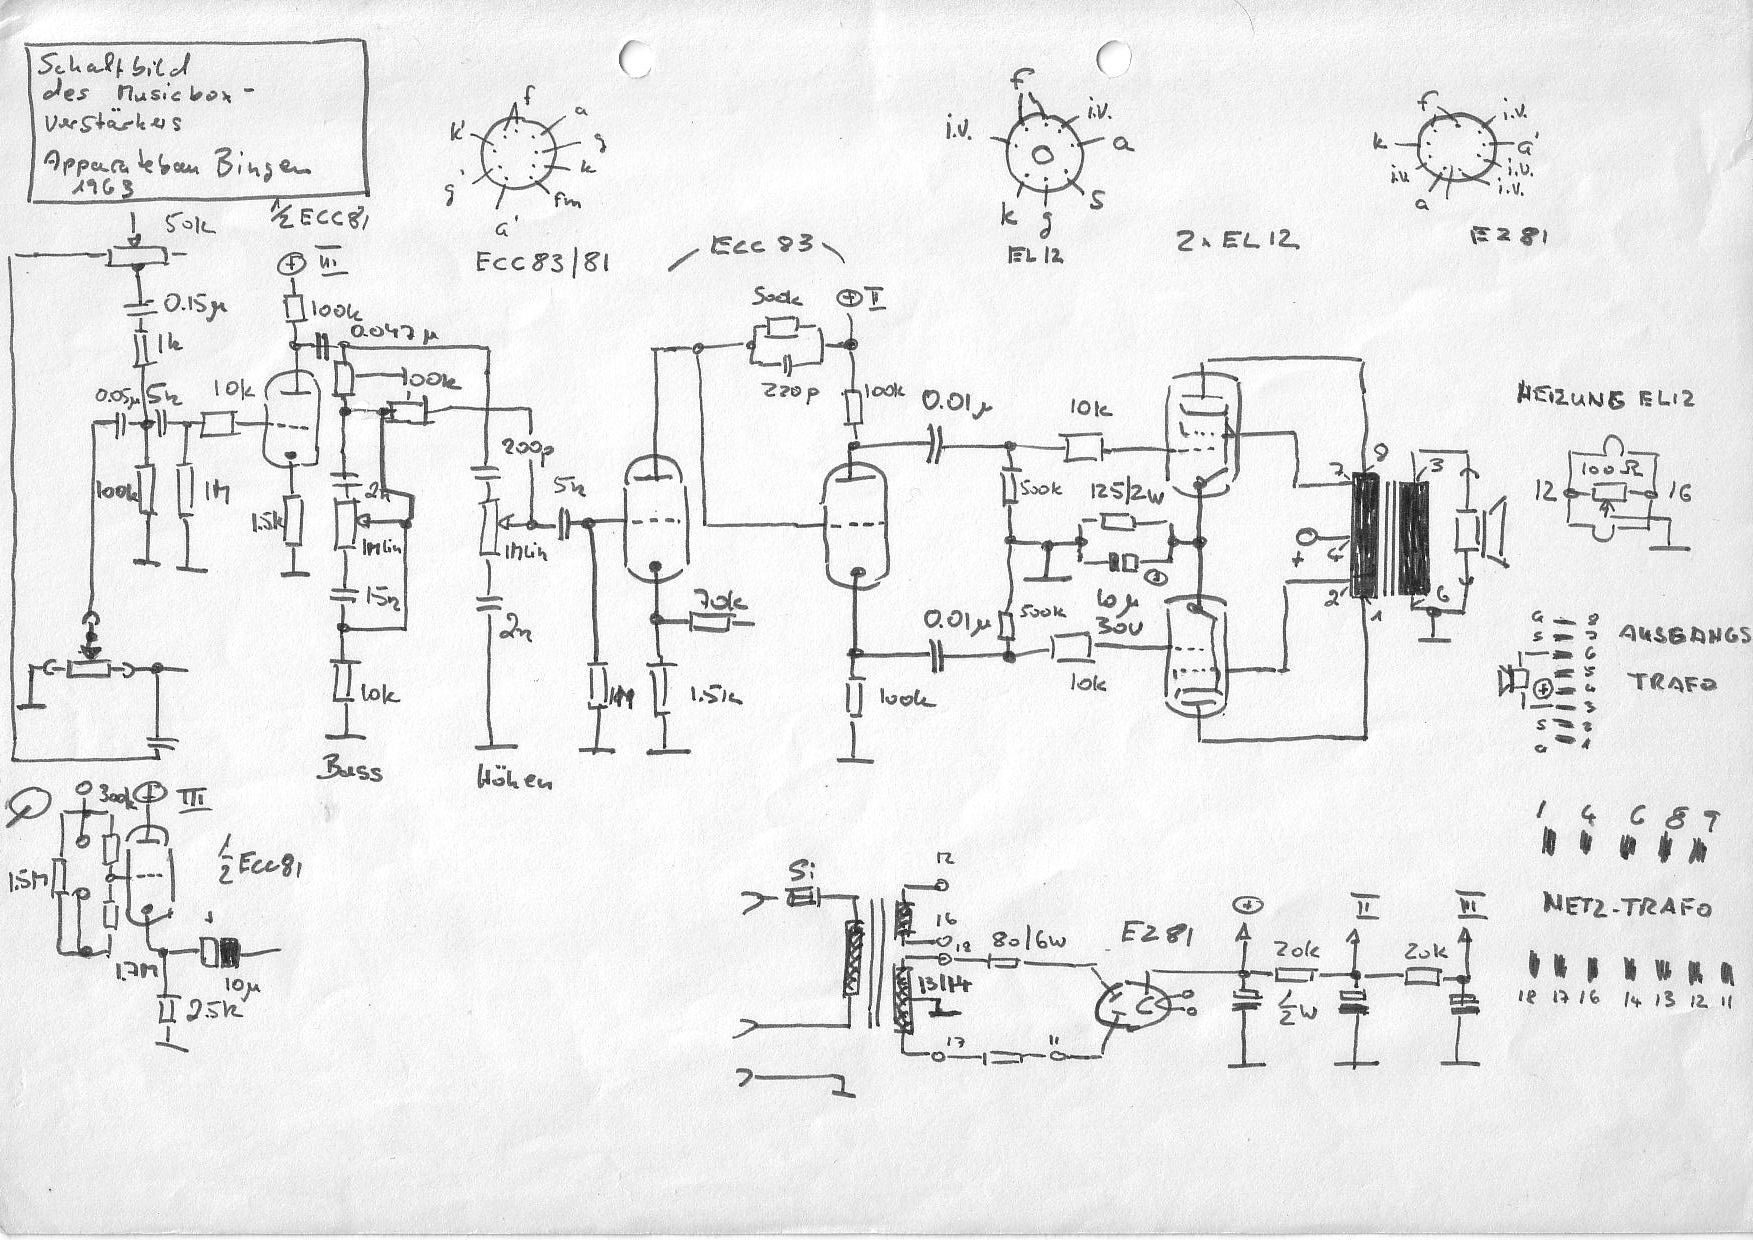 Schaltbild
des Musicbox-
verstärkers
Apparatebau Bingen
1963
f
a
g
k
fm
a'
g'
k'
ECC83/81
f
i.V.
i.V.
a
s
g
k
EL12
2x EL12
f
i.V.
a'
i.V.
i.V.
a
i.V.
k
EZ81
50k
½ ECC81
III
0.15µ
100k
0.047µ
1k
0.05µ
5n
10k
100k
100k
1M
1.5k
2n
1Mlin
15n
10k
Bass
200p
1Mlin
2n
Höhen
5n
1M
ECC83
500k
220p
II
100k
70k
1.5k
100k
0.01µ
10k
500k
125/2W
10µ
30V
0.01µ
500k
10k
8
7
4
+
2
1
3
6
HEIZUNG EL12
100Ω
12
16
AUSGANGS
TRAFO
a 8
s 7
6
5
4
3
s 2
a 1
300k
III
½ ECC81
1.5M
1.7M
10µ
2.5k
Si
12
16
18
80/6W
13/14
17
11
EZ81
+
20k
½W
II
20k
III
1 4 6 8 9
NETZ-TRAFO
18 17 16 14 13 12 11